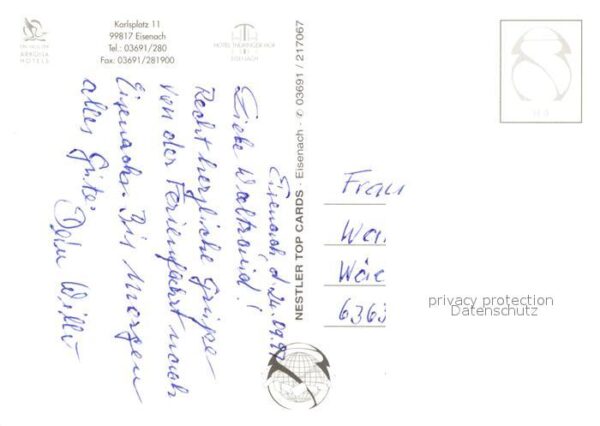 Karlsplatz 11
99817 Eisenach
Tel.: 03691/280
Fax: 03691/281900
HOTELS
HOTEL THÜRINGER HOF
EISENACH
Eisenach d. 24.09.97
Liebe Waltraud!
Recht herzliche Grüße
von der Ferienfahrt nach
Eisenach. Bis Morgen
alles Gute.
Dein Willi
NESTLER TOP CARDS · Eisenach · ✆ 03691 / 217067
Frau
Wal
6363
privacy protection
Datenschutz